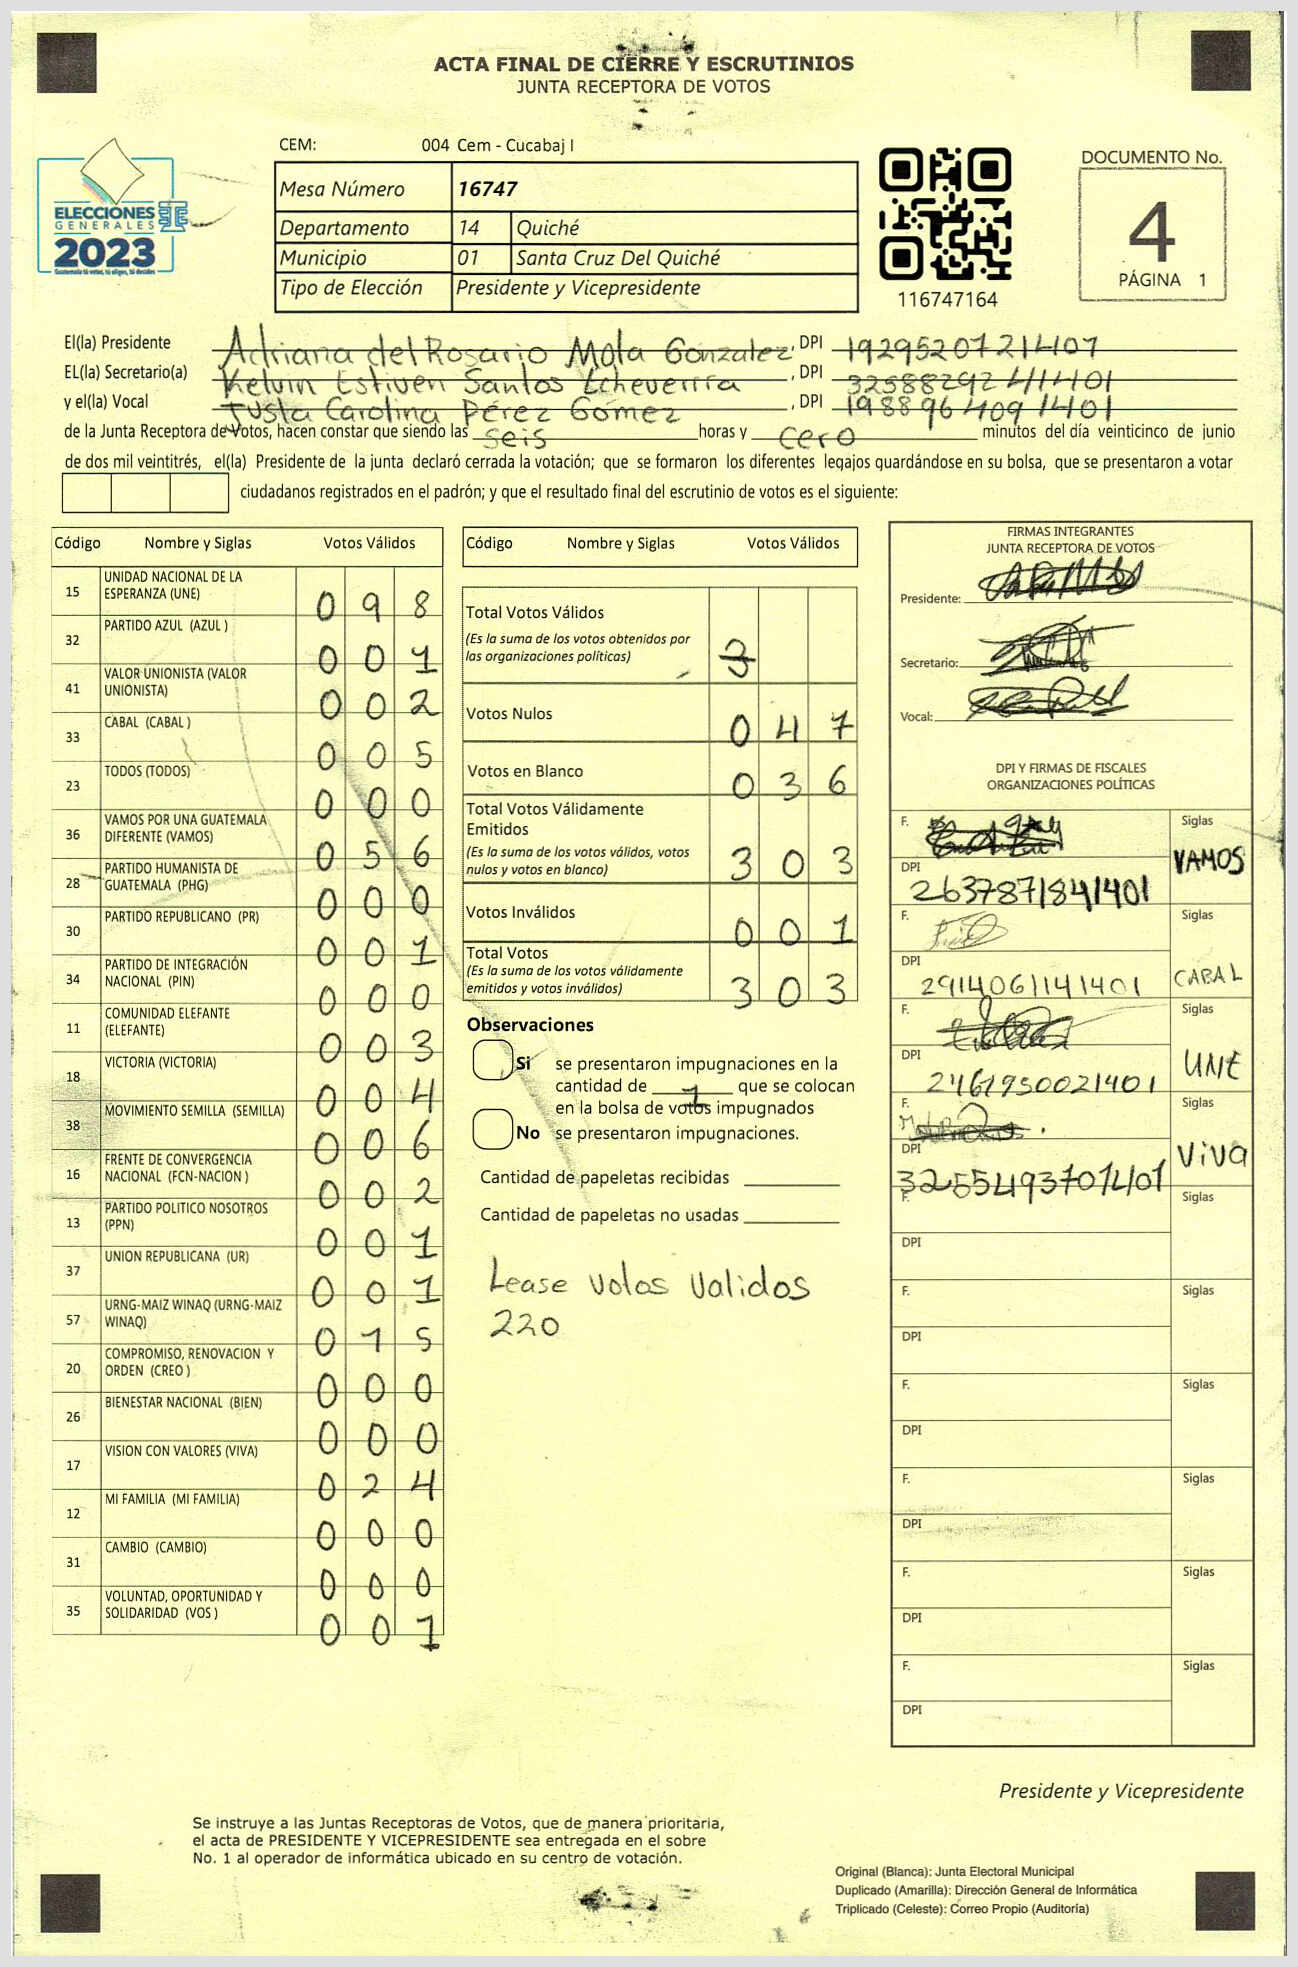 ACTA FINAL DE CIERRE Y ESCRUTINIOS
JUNTA RECEPTORA DE VOTOS
CEM: 004 Cem - Cucabaj I
Mesa Número 16747
Departamento 14 Quiché
Municipio 01 Santa Cruz Del Quiché
Tipo de Elección Presidente y Vicepresidente
ELECCIONES
GENERALES
2023
Guatemala tú votas, tú eliges, tú decides
116747164
DOCUMENTO No.
4
PÁGINA 1
El(la) Presidente Adriana del Rosario Mota Gonzalez, DPI 1929520721407
EL(la) Secretario(a) Kelvin Estiven Santos Echeverria, DPI 3258829241401
y el(la) Vocal Justa Carolina Pérez Gómez, DPI 1988964091401
de la Junta Receptora de Votos, hacen constar que siendo las seis horas y cero minutos del día veinticinco de junio
de dos mil veintitrés, el(la) Presidente de la junta declaró cerrada la votación; que se formaron los diferentes legajos guardándose en su bolsa, que se presentaron a votar
ciudadanos registrados en el padrón; y que el resultado final del escrutinio de votos es el siguiente:
Código Nombre y Siglas Votos Válidos
15 UNIDAD NACIONAL DE LA
ESPERANZA (UNE) 0 9 8
32 PARTIDO AZUL (AZUL ) 0 0 1
41 VALOR UNIONISTA (VALOR
UNIONISTA) 0 0 2
33 CABAL (CABAL ) 0 0 5
23 TODOS (TODOS) 0 0 0
36 VAMOS POR UNA GUATEMALA
DIFERENTE (VAMOS) 0 5 6
28 PARTIDO HUMANISTA DE
GUATEMALA (PHG) 0 0 0
30 PARTIDO REPUBLICANO (PR) 0 0 1
34 PARTIDO DE INTEGRACIÓN
NACIONAL (PIN) 0 0 0
11 COMUNIDAD ELEFANTE
(ELEFANTE) 0 0 3
18 VICTORIA (VICTORIA) 0 0 4
38 MOVIMIENTO SEMILLA (SEMILLA) 0 0 6
16 FRENTE DE CONVERGENCIA
NACIONAL (FCN-NACION ) 0 0 2
13 PARTIDO POLITICO NOSOTROS
(PPN) 0 0 1
37 UNION REPUBLICANA (UR) 0 0 1
57 URNG-MAIZ WINAQ (URNG-MAIZ
WINAQ) 0 1 5
20 COMPROMISO, RENOVACION Y
ORDEN (CREO ) 0 0 0
26 BIENESTAR NACIONAL (BIEN) 0 0 0
17 VISION CON VALORES (VIVA) 0 2 4
12 MI FAMILIA (MI FAMILIA) 0 0 0
31 CAMBIO (CAMBIO) 0 0 0
35 VOLUNTAD, OPORTUNIDAD Y
SOLIDARIDAD (VOS ) 0 0 1
Código Nombre y Siglas Votos Válidos
Total Votos Válidos
(Es la suma de los votos obtenidos por
las organizaciones políticas) 3
Votos Nulos 0 4 7
Votos en Blanco 0 3 6
Total Votos Válidamente
Emitidos
(Es la suma de los votos válidos, votos
nulos y votos en blanco) 3 0 3
Votos Inválidos 0 0 1
Total Votos
(Es la suma de los votos válidamente
emitidos y votos inválidos) 3 0 3
Observaciones
Si se presentaron impugnaciones en la
cantidad de 1 que se colocan
en la bolsa de votos impugnados
No se presentaron impugnaciones.
Cantidad de papeletas recibidas
Cantidad de papeletas no usadas
Lease votos validos
220
FIRMAS INTEGRANTES
JUNTA RECEPTORA DE VOTOS
Presidente:
Secretario:
Vocal:
DPI Y FIRMAS DE FISCALES
ORGANIZACIONES POLÍTICAS
F. Siglas
VAMOS
DPI
2637871841401
F. Siglas
CABAL
DPI
2914061141401
F. Siglas
UNE
DPI
2461950021401
F. Siglas
VIVA
DPI
3255493701401
F. Siglas
DPI
F. Siglas
DPI
F. Siglas
DPI
F. Siglas
DPI
F. Siglas
DPI
F. Siglas
DPI
Presidente y Vicepresidente
Se instruye a las Juntas Receptoras de Votos, que de manera prioritaria,
el acta de PRESIDENTE Y VICEPRESIDENTE sea entregada en el sobre
No. 1 al operador de informática ubicado en su centro de votación.
Original (Blanca): Junta Electoral Municipal
Duplicado (Amarilla): Dirección General de Informática
Triplicado (Celeste): Correo Propio (Auditoría)